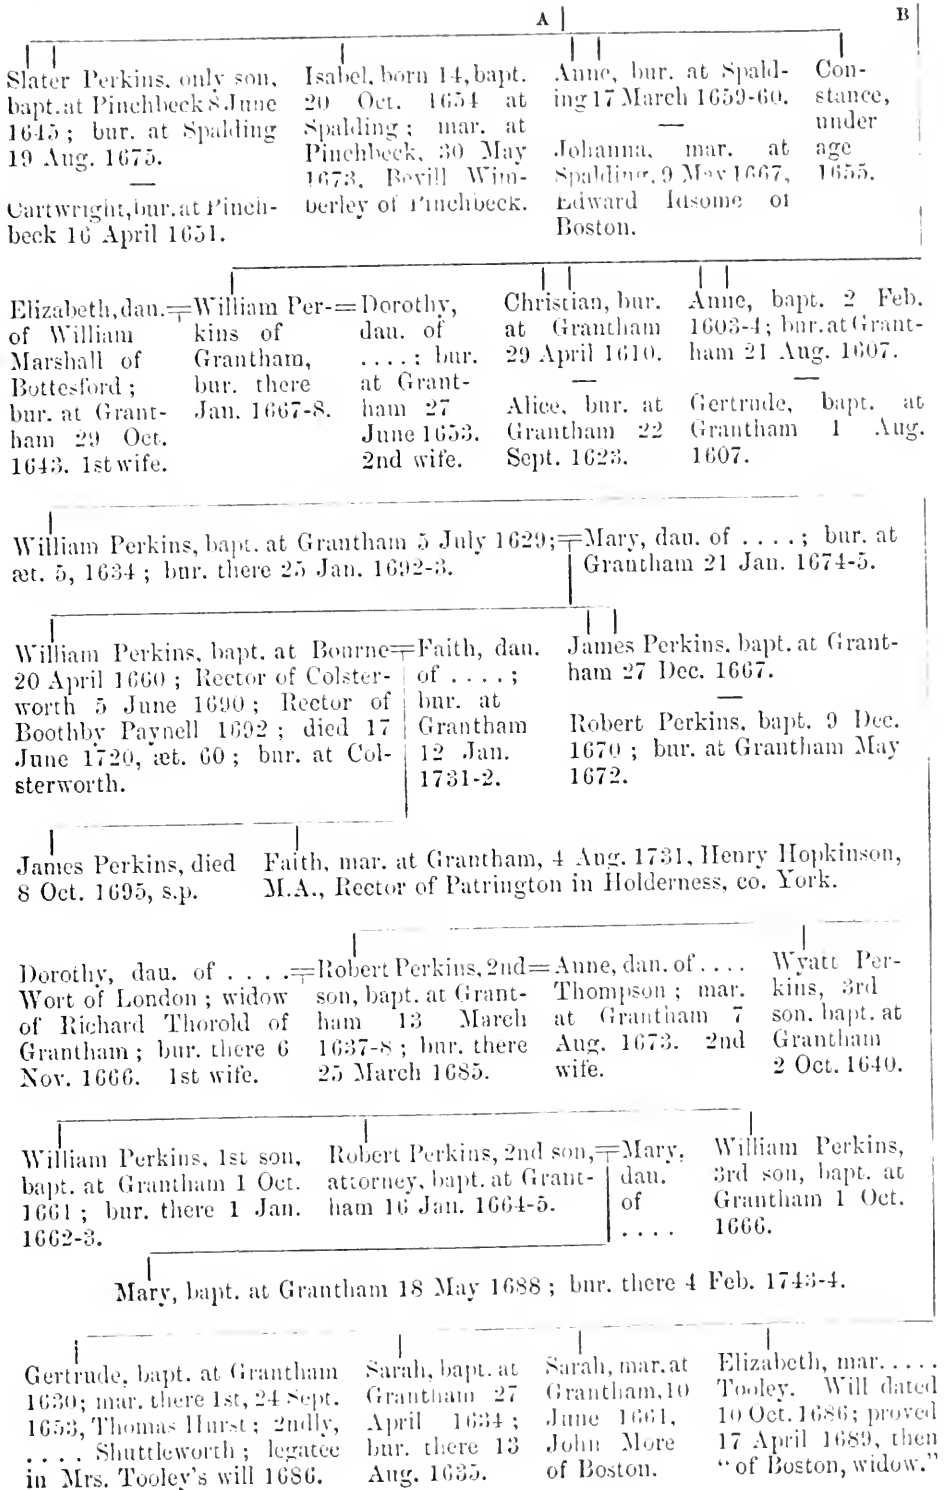 A
B
Slater Perkins, only son,
bapt. at Pinchbeck 8 June
1645; bur. at Spalding
19 Aug. 1675.
—
Cartwright, bur. at Pinch-
beck 16 April 1651.
Isabel, born 14, bapt.
20 Oct. 1654 at
Spalding; mar. at
Pinchbeck, 30 May
1673, Bevill Wim-
berley of Pinchbeck.
Anne, bur. at Spald-
ing 17 March 1659-60.
—
Johanna, mar. at
Spalding, 9 May 1667,
Edward of
Boston.
Con-
stance,
under
age
1655.
Elizabeth, dan.
of William
Marshall of
Bottesford;
bur. at Grant-
ham 29 Oct.
1643. 1st wife.
=William Per-
kins of
Grantham,
bur. there
Jan. 1667-8.
=Dorothy,
dau. of
....: bur.
at Grant-
ham 27
June 1653.
2nd wife.
Christian, bur.
at Grantham
29 April 1610.
—
Alice, bur. at
Grantham 22
Sept. 1623.
Anne, bapt. 2 Feb.
1603-4; bur. at Grant-
ham 21 Aug. 1607.
—
Gertrude, bapt. at
Grantham 1 Aug.
1607.
William Perkins, bapt. at Grantham 5 July 1629;
æt. 5, 1634; bur. there 25 Jan. 1692-3.
=Mary, dau. of ....; bur. at
Grantham 21 Jan. 1674-5.
William Perkins, bapt. at Bourne
20 April 1660; Rector of Colster-
worth 5 June 1690; Rector of
Boothby Paynell 1692; died 17
June 1720, æt. 60; bur. at Col-
sterworth.
=Faith, dau.
of ....;
bur. at
Grantham
12 Jan.
1731-2.
James Perkins, bapt. at Grant-
ham 27 Dec. 1667.
—
Robert Perkins, bapt. 9 Dec.
1670; bur. at Grantham May
1672.
James Perkins, died
8 Oct. 1695, s.p.
Faith, mar. at Grantham, 4 Aug. 1731, Henry Hopkinson,
M.A., Rector of Patrington in Holderness, co. York.
Dorothy, dau. of ....
Wort of London; widow
of Richard Thorold of
Grantham; bur. there 6
Nov. 1666. 1st wife.
=Robert Perkins, 2nd
son, bapt. at Grant-
ham 13 March
1637-8; bur. there
25 March 1685.
=Anne, dan. of ....
Thompson; mar.
at Grantham 7
Aug. 1673. 2nd
wife.
Wyatt Per-
kins, 3rd
son, bapt. at
Grantham
2 Oct. 1640.
William Perkins, 1st son,
bapt. at Grantham 1 Oct.
1661; bur. there 1 Jan.
1662-3.
Robert Perkins, 2nd son,
attorney, bapt. at Grant-
ham 16 Jan. 1664-5.
=Mary,
dau.
of
....
William Perkins,
3rd son, bapt. at
Grantham 1 Oct.
1666.
Mary, bapt. at Grantham 18 May 1688; bur. there 4 Feb. 1743-4.
Gertrude, bapt. at Grantham
1630; mar. there 1st, 24 Sept.
1653, Thomas Hurst; 2ndly,
.... Shuttleworth; legatee
in Mrs. Tooley's will 1686.
Sarah, bapt. at
Grantham 27
April 1634;
bur. there 13
Aug. 1635.
Sarah, mar. at
Grantham, 10
June 1661,
John More
of Boston.
Elizabeth, mar. ....
Tooley. Will dated
10 Oct. 1686; proved
17 April 1689, then
"of Boston, widow."